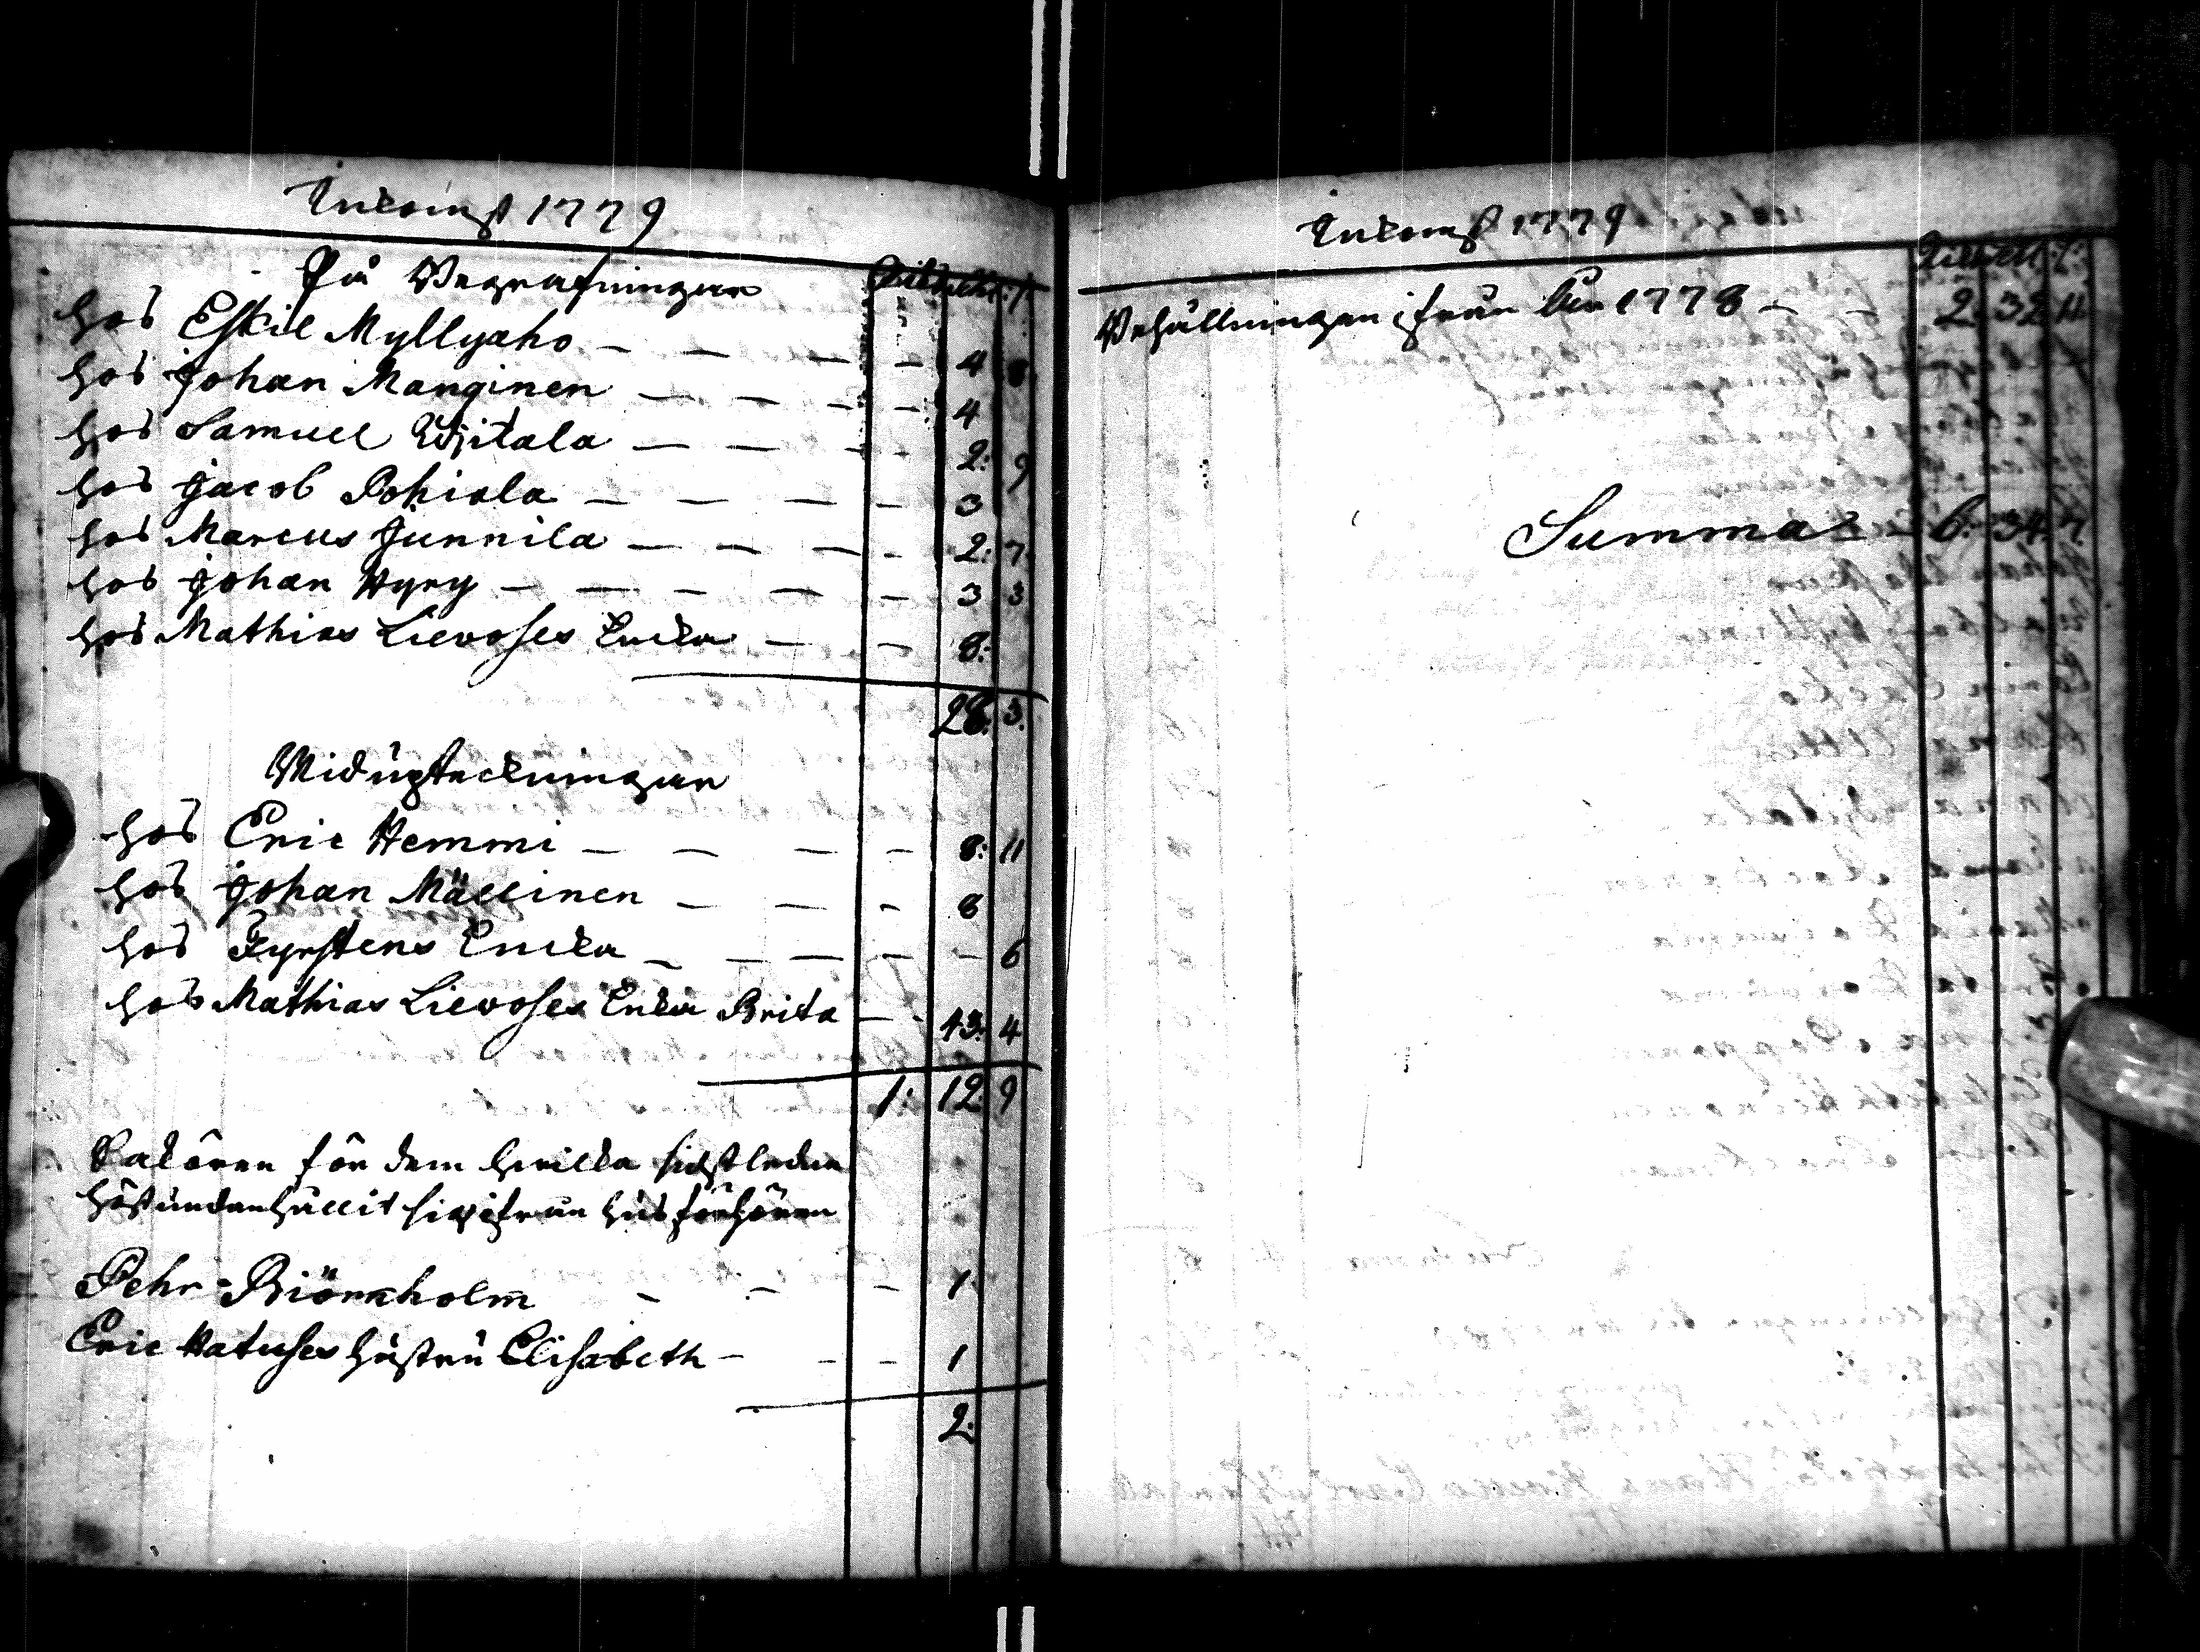 Inkomst 1779
På Begrafningar
hos Eskil Myllyaho - - - - 4 8
hos Johan Manginen - - - - 4
hos Samuel Wjitala - - - - 2: 9
hos Jacob Pohiola - - - - 3
hos Marcus Junnila - - - - 2: 7
hos Johan Hyry - - - - - 3 3
hos Mathias Lievoses Encka - - 8:
28: 3.
Wid upteckningar
hos Eric Hemmi - - - - 8: 11
hos Johan Mällinen - - - 8
hos Fyrstens Encka - - - - - 6
hos Mathias Lievoses Encka Brita - - 43: 4
1: 12 9
Sakören för dem hvilka sidstledne
höst undanhållit sig ifrån husförhören
Pehr Biörnholm - - - 1
Eric Hatuses hustru Elisabeth - - - 1
2:
Inkomst 1779
Behållningen ifrån åhr 1778 - - 2. 32 11
Summa - 6: 34. 7.